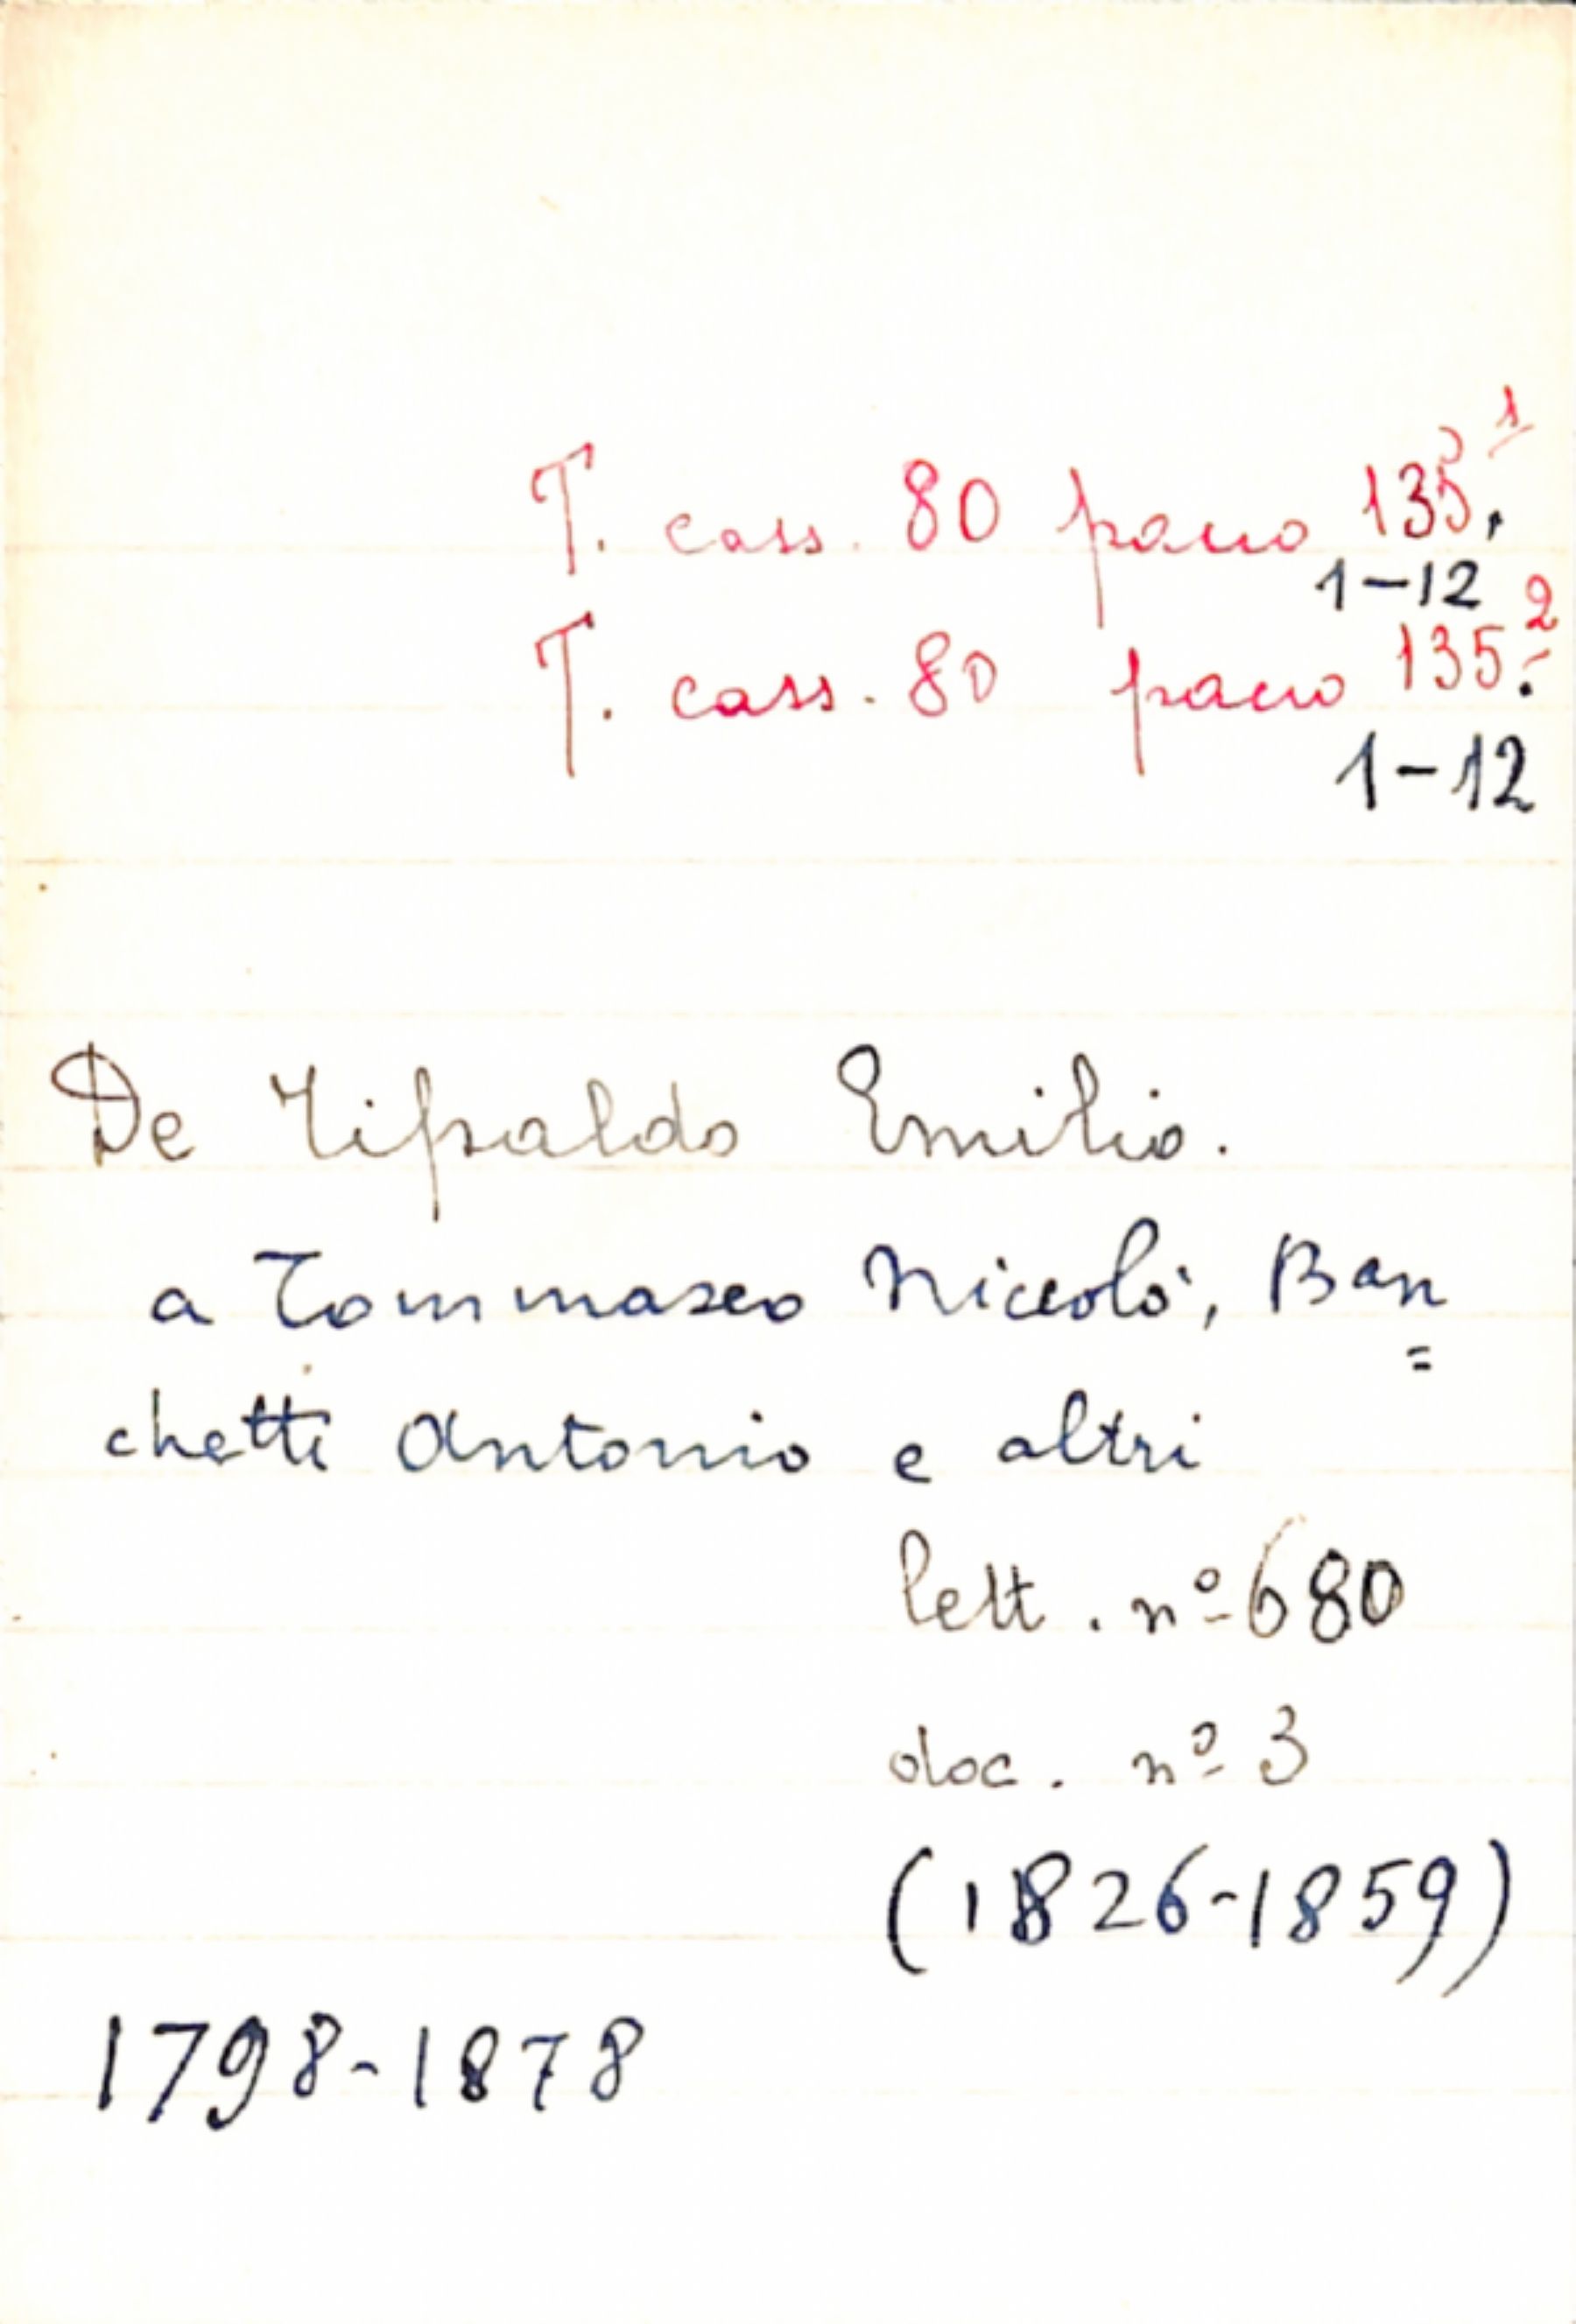 T. cass. 80 pacco 135.¹
1-12
T. cass. 80 pacco 135.²
1-12
De Tipaldo Emilio.
a Tommaseo Niccolò, Ban=
chetti Antonio e altri
lett. nº 680
doc. nº 3
(1826-1859)
1798-1878